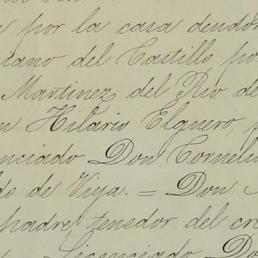 por la casa deudor
ciano del Castillo, po
Martinez del Rio de
n Hilario Elguero,
enciado Don Corneli
do de Viya. = Don
padre, tenedor del cre
Licenciado Do